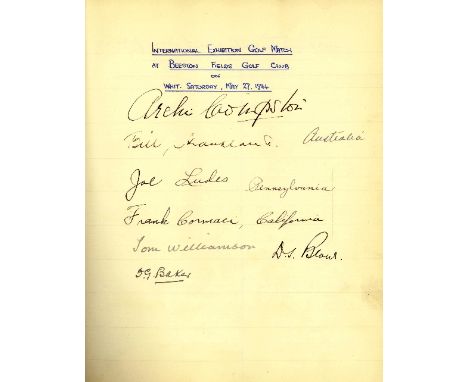 INTERNATIONAL EXHIBITION GOLF MATCH
AT BEESTON FIELDS GOLF CLUB
ON
WHIT. SATURDAY, MAY 27. 1944
Archi
Bill, Australia
Joe Ludes Pennsylvania
Frank California
Tom Williamson
D.S.
BAKER